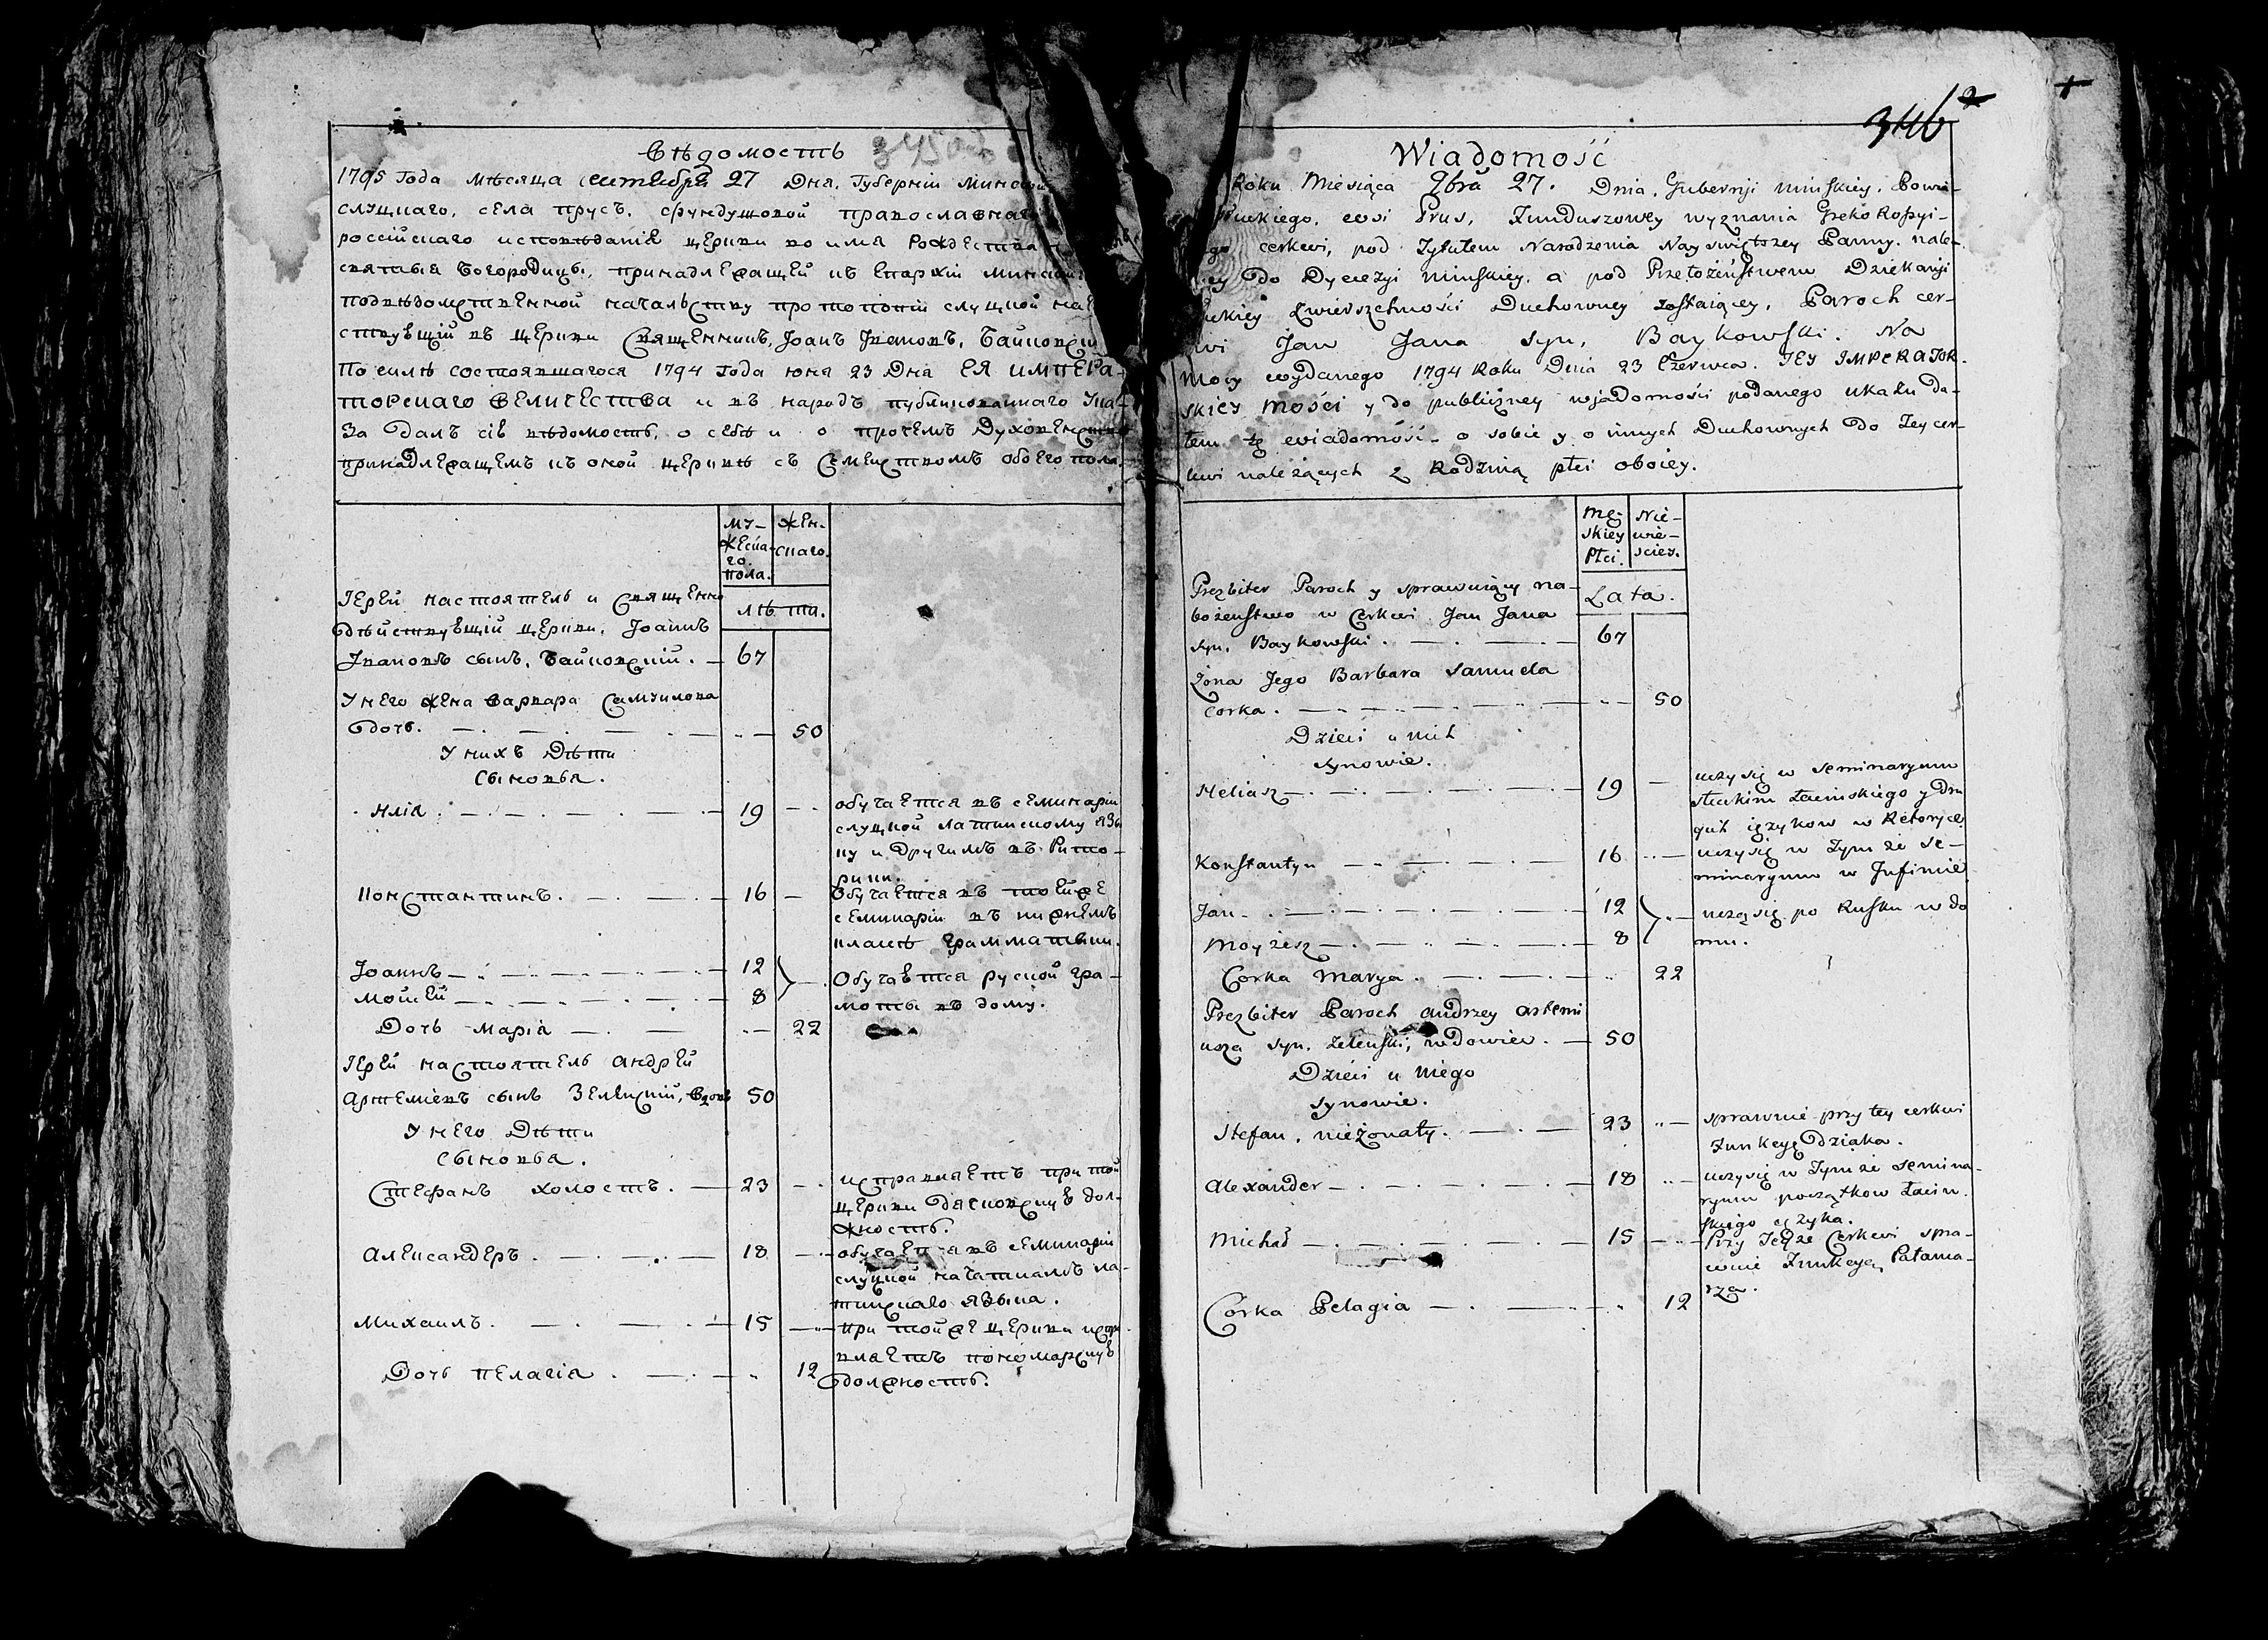 Вѣдомость
1795 Года Мѣсяца сентебря 27 Дня, Губерніи Минской
слуцкаго, села Прусъ, Фундушовой православнаго
россійскаго исповѣданія церкви во имя Рождества
святыя Богородицы, принадлежащей къ Епархіи Минской
подвѣдомственной начальству протопопіи слуцкой
ствующій въ церкви Священникъ, Іоанъ Ивановъ, Байковскій
По силѣ состоявшагося 1794 Года юня 23 Дна ЕЯ ИМПЕРА-
ТОРСКАГО ВЕЛИЧЕСТВА и въ народъ публикованнаго Ука-
за Далъ сію вѣдомость, о себѣ и о прочемъ Духовенствѣ
принадлежащемъ къ оной церквѣ съ Семействомъ обоего пола.
Му- Жен-
жеска- скаго.
го.
пола.
Лѣти.
Іерей настоятель и Священно
дѣйствующій церкви, Іоаннъ
Ивановъ сынъ, Байковскій. 67
У него жена Варвара Самуилова
дочь. 50
У нихъ Дѣти
Сыновья.
Илія. 19 обучается въ семинаріи
слуцкой латинскому язы
ку и другимъ въ Рито-
рики.
Константинъ. 16 Обучается въ тойже
семинаріи въ нижнемъ
класѣ Грамматики.
Іоаннъ 12
Мойсей 8 Обучаются руской гра-
моты въ дому.
Дочь Марія 22
Іерей настоятель Андрей
Артеміевъ сынъ Зеленскій, вдовъ 50
У него Дѣти
Сыновья.
Стефанъ холостъ. 23 исправляетъ при той
церкви дяковскую дол-
жность.
Александеръ. 18 обучается въ семинаріи
слуцкой начаткамъ ла-
тинскаго языка.
Михаилъ. 15 при тойже церкви испра
вляетъ пономарскую
должность.
Дочь Пелагія 12
346
Wiadomość
Roku Miesiąca 9bra 27. Dnia, Gubernji Minskiey, Powia-
Słuckiego, wsi Prus, Funduszowey wyznania Greko Rossyi-
go cerkwi, pod Tytułem Narodzenia Nayswiętszey Panny. nale-
cey do Dyecezyi Minskiey, a pod Przełożeństwem Dziekanji
Słuckiey Zwierzchności Duchowney zostaiącey, Paroch cer-
kwi Jan Jana syn, Baykowski. Na
Mocy wydanego 1794 Roku Dnia 23 Czerwca. JEY IMPERATOR-
SKIEY MOŚCI y do publiczney wjadomości podanego ukazu da-
łem tę wiadomość o sobie y o innych Duchownych do Tey cer-
kwi należących z Rodziną płci oboiey.
Mę- Nie-
skiey wie-
Płci. sciey.
Lata.
Prezbiter Paroch y sprawuiący na-
bożenstwo w Cerkwi Jan Jana
syn, Baykowski. 67
Zona Jego Barbara Samuela
corka. 50
Dzieci u nich
synowie.
Heliasz 19 uczy się w Seminaryum
słuckim Łacinskiego y dru
gich ięzykow w Retoryce
Konstantyn 16 uczy się w Tymże Se-
minaryum w Infimie
Jan 12 uczą się po Rusku w do
Moyżesz 8 mu.
Corka Marya 22
Prezbiter Paroch Andrzey Artemi
usza syn, Zelenski, wdowiec. 50
Dzieci u niego
synowie.
Stefan, nieżonaty. 23 sprawuie przy tey cerkwi
Funkcyę dziaka.
Alexander 18 uczy się w Tymże Semina-
ryum początkow Łacin-
skiego ięzyka.
Michał 15 Przy Teyże Cerkwi spra-
wuie Funkcyę Palama-
rza.
Corka Pelagia 12